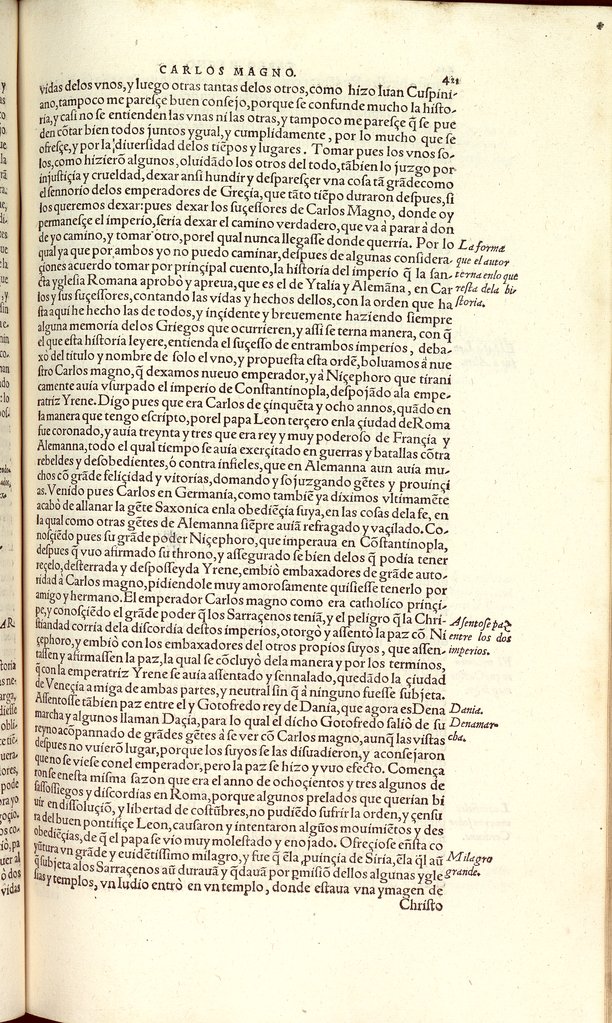 CARLOS MAGNO. 421
vidas delos vnos, y luego otras tantas delos otros, como hizo Iuan Cuspini-
ano, tampoco me paresçe buen consejo, porque se confunde mucho la histo-
ria, y casi no se entienden las vnas ni las otras, y tampoco me paresçe q̃ se pue
den cõtar bien todos juntos ygual, y cumplidamente, por lo mucho que se
ofresçe, y por la diuersidad delos tiẽpos y lugares. Tomar pues los vnos so-
los, como hizierõ algunos, oluidãdo los otros del todo, tãbien lo juzgo por
injustiçia y crueldad, dexar ansi hundir y desparesçer vna cosa tã grãde como
el sennorio delos emperadores de Greçia, que tãto tiẽpo duraron despues, si
los queremos dexar: pues dexar los suçessores de Carlos Magno, donde oy
permanesçe el imperio, seria dexar el camino verdadero, que va à parar à don
de yo camino, y tomar otro, por el qual nunca llegasse donde querria. Por lo
qual ya que por ambos yo no puedo caminar, despues de algunas considera-
çiones acuerdo tomar por prinçipal cuento, la historia del imperio q̃ la san-
cta yglesia Romana aprobò y aprueua, que es el de Ytalia y Alemãna, en Car
los y sus suçessores, contando las vidas y hechos dellos, con la orden que ha
sta aqui he hecho las de todos, y inçidente y breuemente haziendo siempre
alguna memoria delos Griegos que ocurrieren, y assi se terna manera, con q̃
el que esta historia leyere, entienda el suçesso de entrambos imperios, deba-
xo del titulo y nombre de solo el vno, y propuesta esta ordẽ, boluamos à nue
stro Carlos magno, q̃ dexamos nueuo emperador, y à Niçephoro que tirani
camente auia vsurpado el imperio de Constantinopla, despojãdo ala empe-
ratriz Yrene. Digo pues que era Carlos de çinquẽta y ocho annos, quãdo en
la manera que tengo escripto, por el papa Leon terçero enla çiudad de Roma
fue coronado, y auia treynta y tres que era rey y muy poderoso de Françia y
Alemanna, todo el qual tiempo se auia exerçitado en guerras y batallas cõtra
rebeldes y desobedientes, ò contra infieles, que en Alemanna aun auia mu-
chos cõ grãde feliçidad y vitorias, domando y sojuzgando gẽtes y prouinçi
as. Venido pues Carlos en Germania, como tambiẽ ya diximos vltimamẽte
acabò de allanar la gẽte Saxonica enla obediẽçia suya, en las cosas dela fe, en
la qual como otras gẽtes de Alemanna siẽpre auiã refragado y vaçilado. Co-
nosçiẽdo pues su grãde poder Niçephoro, que imperaua en Cõstantinopla,
despues q̃ vuo afirmado su throno, y assegurado se bien delos q̃ podia tener
reçelo, desterrada y desposseyda Yrene, embiò embaxadores de grãde auto-
ridad à Carlos magno, pidiendole muy amorosamente quisiesse tenerlo por
amigo y hermano. El emperador Carlos magno como era catholico prinçi-
pe, y conosçiẽdo el grãde poder q̃ los Sarraçenos teniã, y el peligro q̃ la Chri-
stiandad corria dela discordia destos imperios, otorgò y assentò la paz cõ Ni
çephoro, y embiò con los embaxadores del otros propios suyos, que assen-
tassen y afirmassen la paz, la qual se cõcluyò dela manera y por los terminos,
q̃ con la emperatriz Yrene se auia assentado y sennalado, quedãdo la çiudad
de Veneçia amiga de ambas partes, y neutral sin q̃ à ninguno fuesse subjeta.
Assentosse tãbien paz entre el y Gotofredo rey de Dania, que agora es Dena
marcha y algunos llaman Daçia, para lo qual el dicho Gotofredo saliò de su
reyno acõpannado de grãdes gẽtes à se ver cõ Carlos magno, aunq̃ las vistas
despues no vuierõ lugar, porque los suyos se las disuadieron, y aconsejaron
que no se viese con el emperador, pero la paz se hizo y vuo efecto. Comença
ronse enesta misma sazon que era el anno de ochoçientos y tres algunos de
sassossiegos y discordias en Roma, porque algunos prelados que querian bi
uir en dissoluçiõ, y libertad de costũbres, no pudiẽdo sufrir la orden, y çensu
ra del buen pontifiçe Leon, causaron y intentaron algũos mouimiẽtos y des
obediẽçias, de q̃ el papa se vio muy molestado y enojado. Ofreçiose eñsta co
yũtura vn grãde y euidẽtissimo milagro, y fue q̃ ẽla ꝓuinçia de Siria, ẽla ql̃ aũ
q̃ subjeta alos Sarraçenos aũ durauã y q̃dauã por ꝑmisiõ dellos algunas ygle
sias y templos, vn Iudio entrò en vn templo, donde estaua vna ymagen de
Christo
La forma
que el autor
terna enlo que
resta dela hi-
storia.
Asentose paz
entre los dos
imperios.
Dania.
Denamar-
cha.
Milagro
grande.